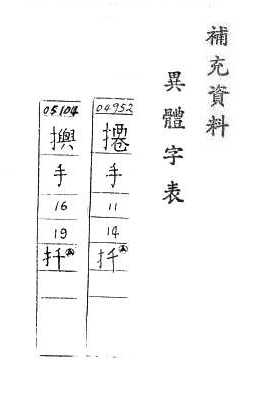 補充資料
異體字表
04952
手
11
14
05104
手
16
19